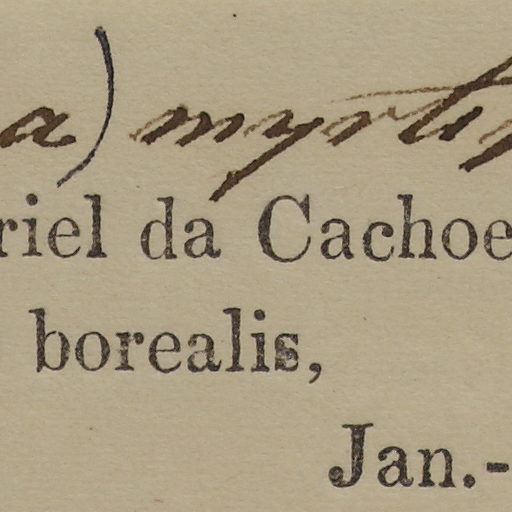 a) myrti
riel da Cachoe
borealis,
Jan.-